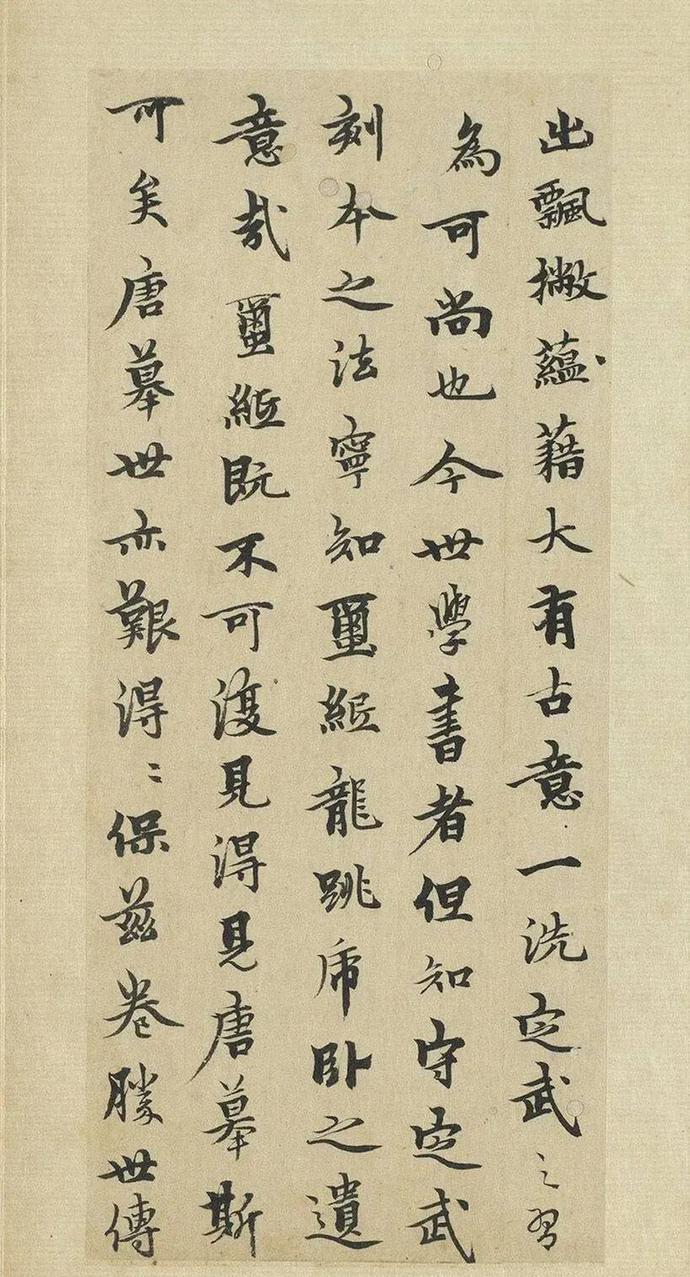 出飄撇蘊藉大有古意一洗定武之習
為可尚也今世學書者但知守定武
刻本之法寧知璽紙龍跳虎卧之遺
意哉璽紙既不可復見得見唐摹斯
可矣唐摹世亦艱得得保茲卷勝世傳